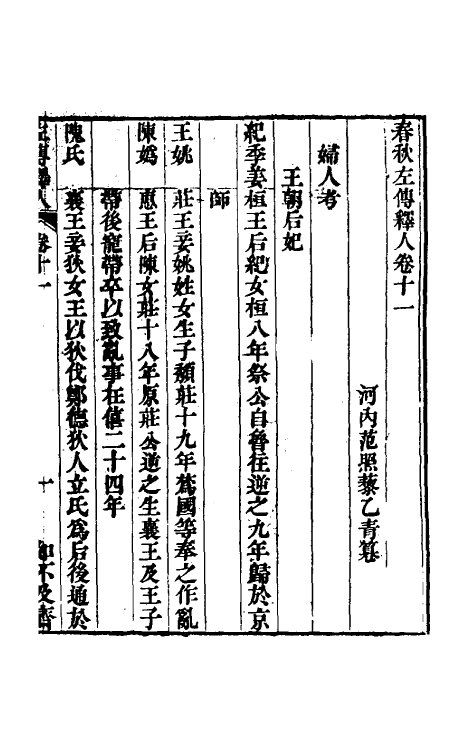 春秋左傳釋人卷十一
河內范照藜乙青篹
婦人考
王朝后妃
紀季姜桓王后紀女桓八年祭公自魯往逆之九年歸於京
師
王姚　莊王妾姚姓女生子頹莊十九年蔿國等奉之作亂
陳嬀　惠王后陳女莊十八年原莊公逆之生襄王及王子
帶後寵帶卒以致亂事在僖二十四年
隗氏　襄王妾狄女王以狄伐鄭德狄人立氏爲后後通於
傳釋人　卷十一　十　如不及齋